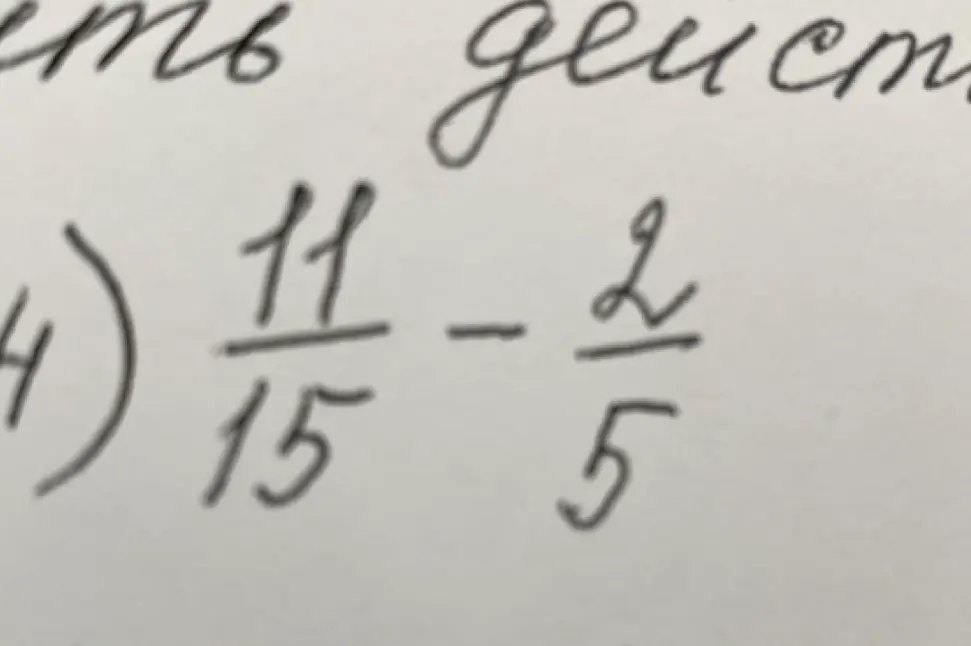 ить дейст
4) 11/15 - 2/5